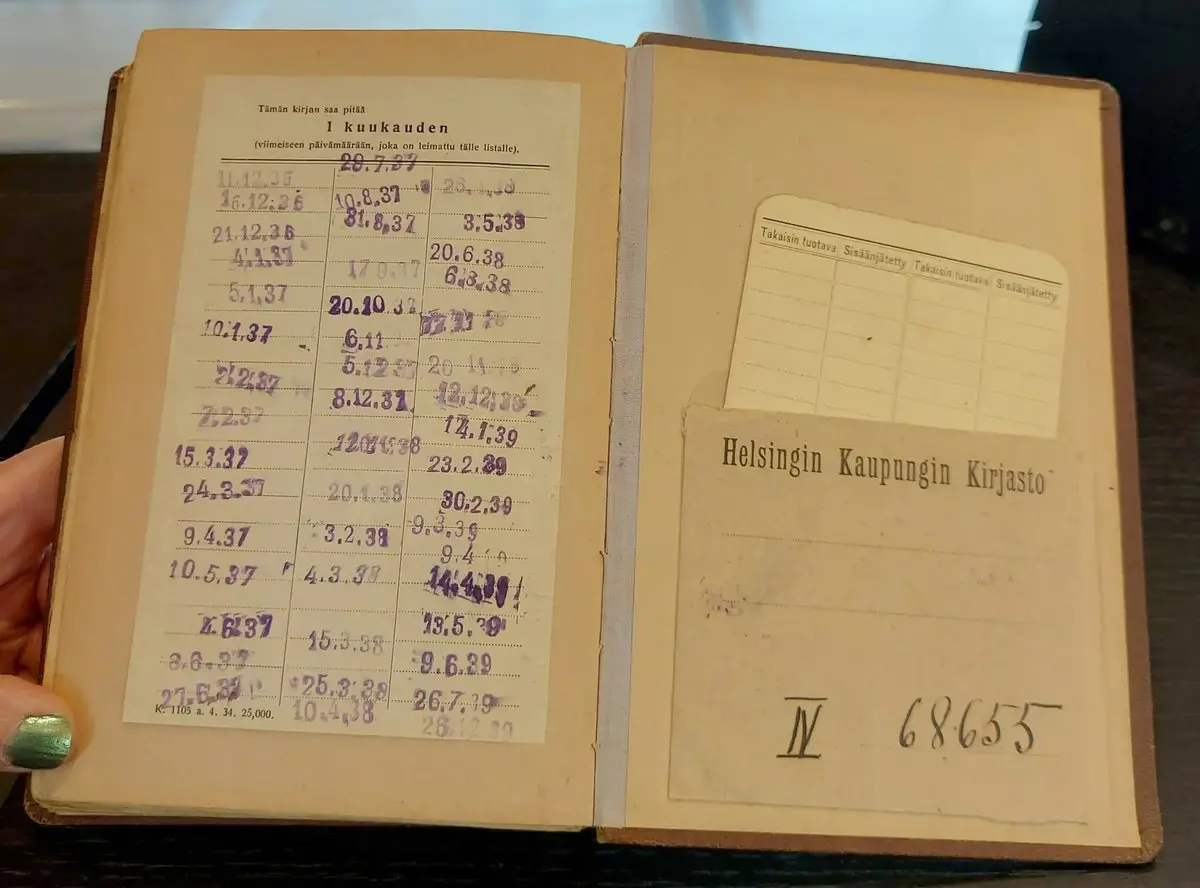 Tämän kirjan saa pitää
1 kuukauden
(viimeiseen päivämäärään, joka on leimattu tälle listalle).
11.12.36
16.12.36
21.12.36
4.1.37
5.1.37
10.1.37
2.2.37
7.2.37
15.3.37
24.3.37
9.4.37
10.5.37
27.6.37
K. 1105 a. 4. 34. 25,000.
29.7.37
10.8.37
31.8.37
20.10.37
6.11
5.12.37
8.12.37
20.1.38
3.2.38
4.3.38
15.3.38
25.3.38
10.4.38
3.5.38
20.6.38
6.8.38
12.12.38
14.1.39
23.2.39
30.2.39
9.3.39
9.4
14.4.39
13.5.39
9.6.39
26.7.39
26.12.39
Takaisin tuotava Sisäänjätetty Takaisin tuotava Sisäänjätetty
Helsingin Kaupungin Kirjasto
IV 68655